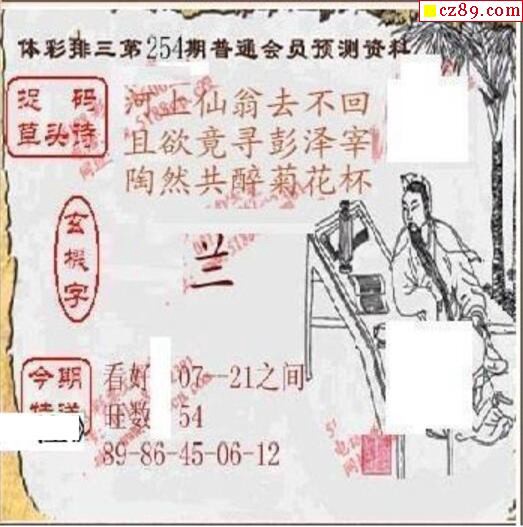 cz89.com
体彩排三第254期普通会员预测资料
捉码
草头诗
河上仙翁去不回
且欲竟寻彭泽宰
陶然共醉菊花杯
玄機字
兰
今期
特送
看好 07--21之间
旺数 54
89-86-45-06-12